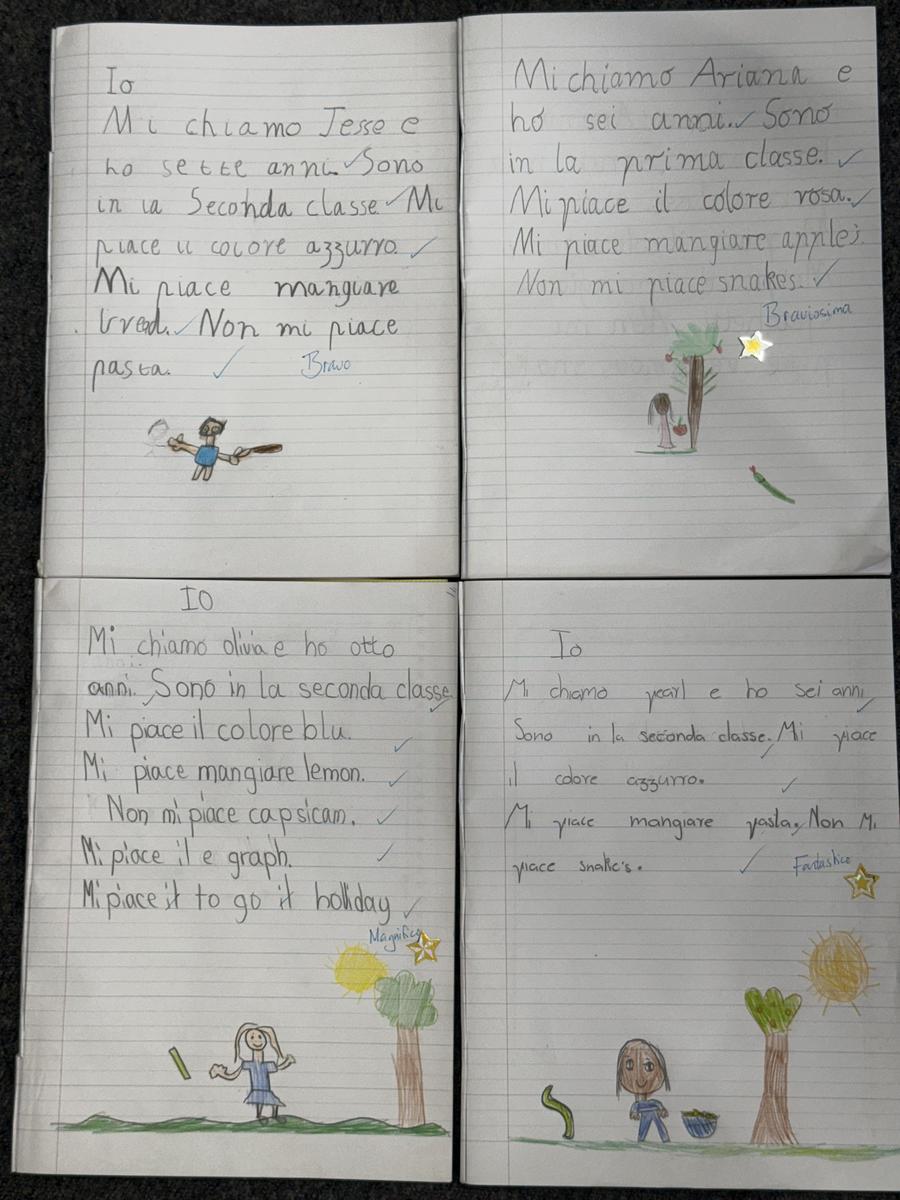 Io
Mi chiamo Jesse e
ho sette anni. Sono
in la Seconda classe Mi
piace il colore azzurro.
Mi piace mangiare
bread. Non mi piace
pasta.
Bravo
Mi chiamo Ariana e
ho sei anni. Sono
in la prima classe.
Mi piace il colore rosa.
Mi piace mangiare apples.
Non mi piace snakes.
Braviosima
IO
Mi chiamo olivia e ho otto
anni. Sono in la seconda classe
Mi piace il colore blu.
Mi piace mangiare lemon.
Non mi piace capsicam.
Mi piace il e graph.
Mi piace it to go it holiday
Magnifico
Io
Mi chiamo pearl e ho sei anni
Sono in la seconda classe. Mi piace
il colore azzurro.
Mi piace mangiare pasta. Non Mi
piace snake's.
Fantastico